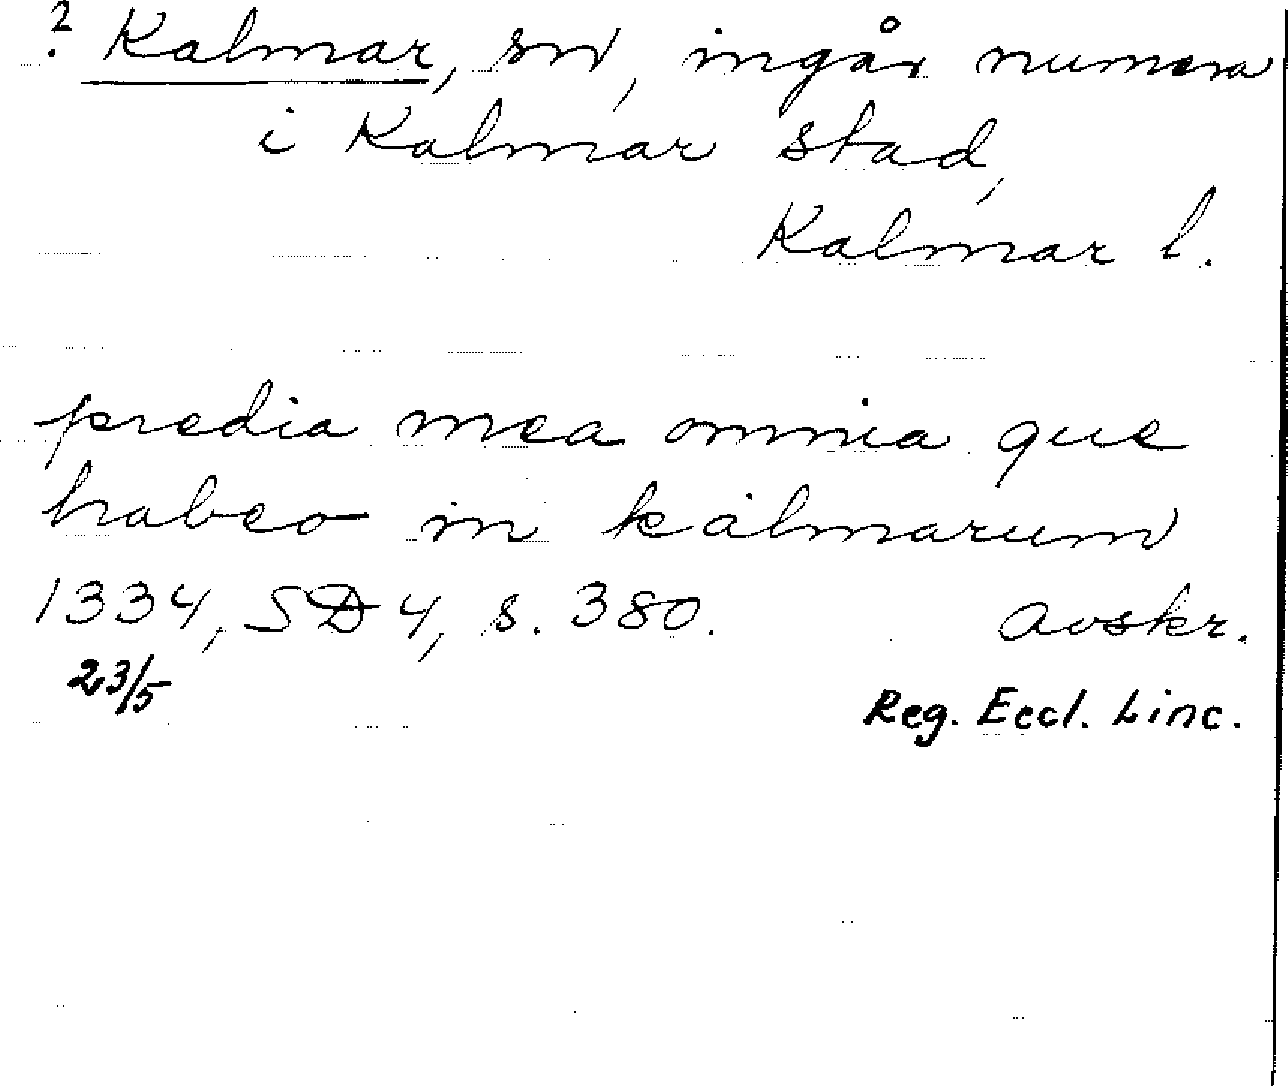 ? Kalmar, sn, ingår numera
i Kalmar stad,
Kalmar l.
predia mea omnia que
habeo in kalmarum
1334, SD 4, s. 380. avskr.
23/5
Reg. Eccl. Linc.